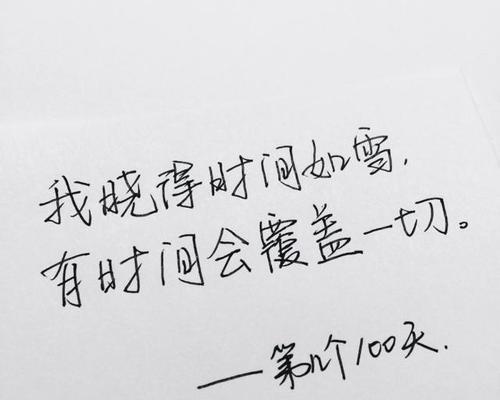 我晓得时间如雪,
有时间会覆盖一切。
——第n个100天.